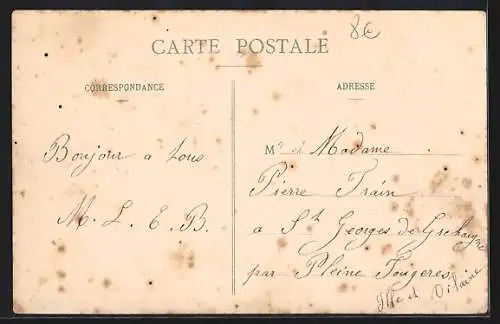 8€
CARTE POSTALE
CORRESPONDANCE
ADRESSE
Bonjour a tous
M. L. E. B.
Mr et Madame
Pierre Train
a St Georges de Grehaigne
par Pleine Fougeres
Ille et Vilaine